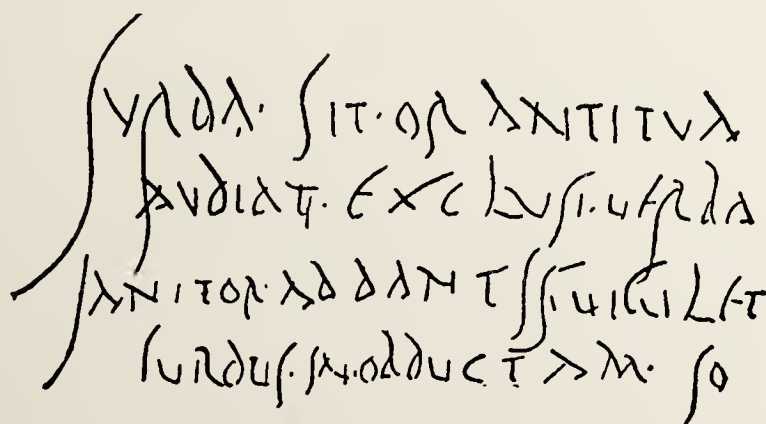 SVRDA· SIT·OR ANTITVA
AVDIAT· EXCLVSI·VERBA
IANITOR·AD DANTIS VIGILET
SVRDVS·IN·OBDVCTAM· SO